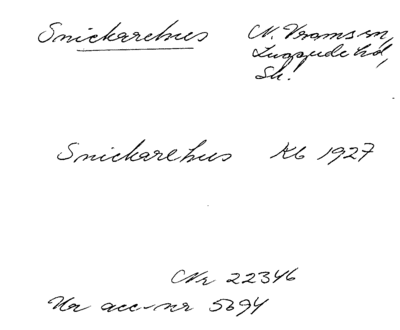 Snickarehus N. Vrams sn,
Luggude hd,
Sk.
Snickarehus Kb 1927
Nr 22346
Ur acc-nr 5694